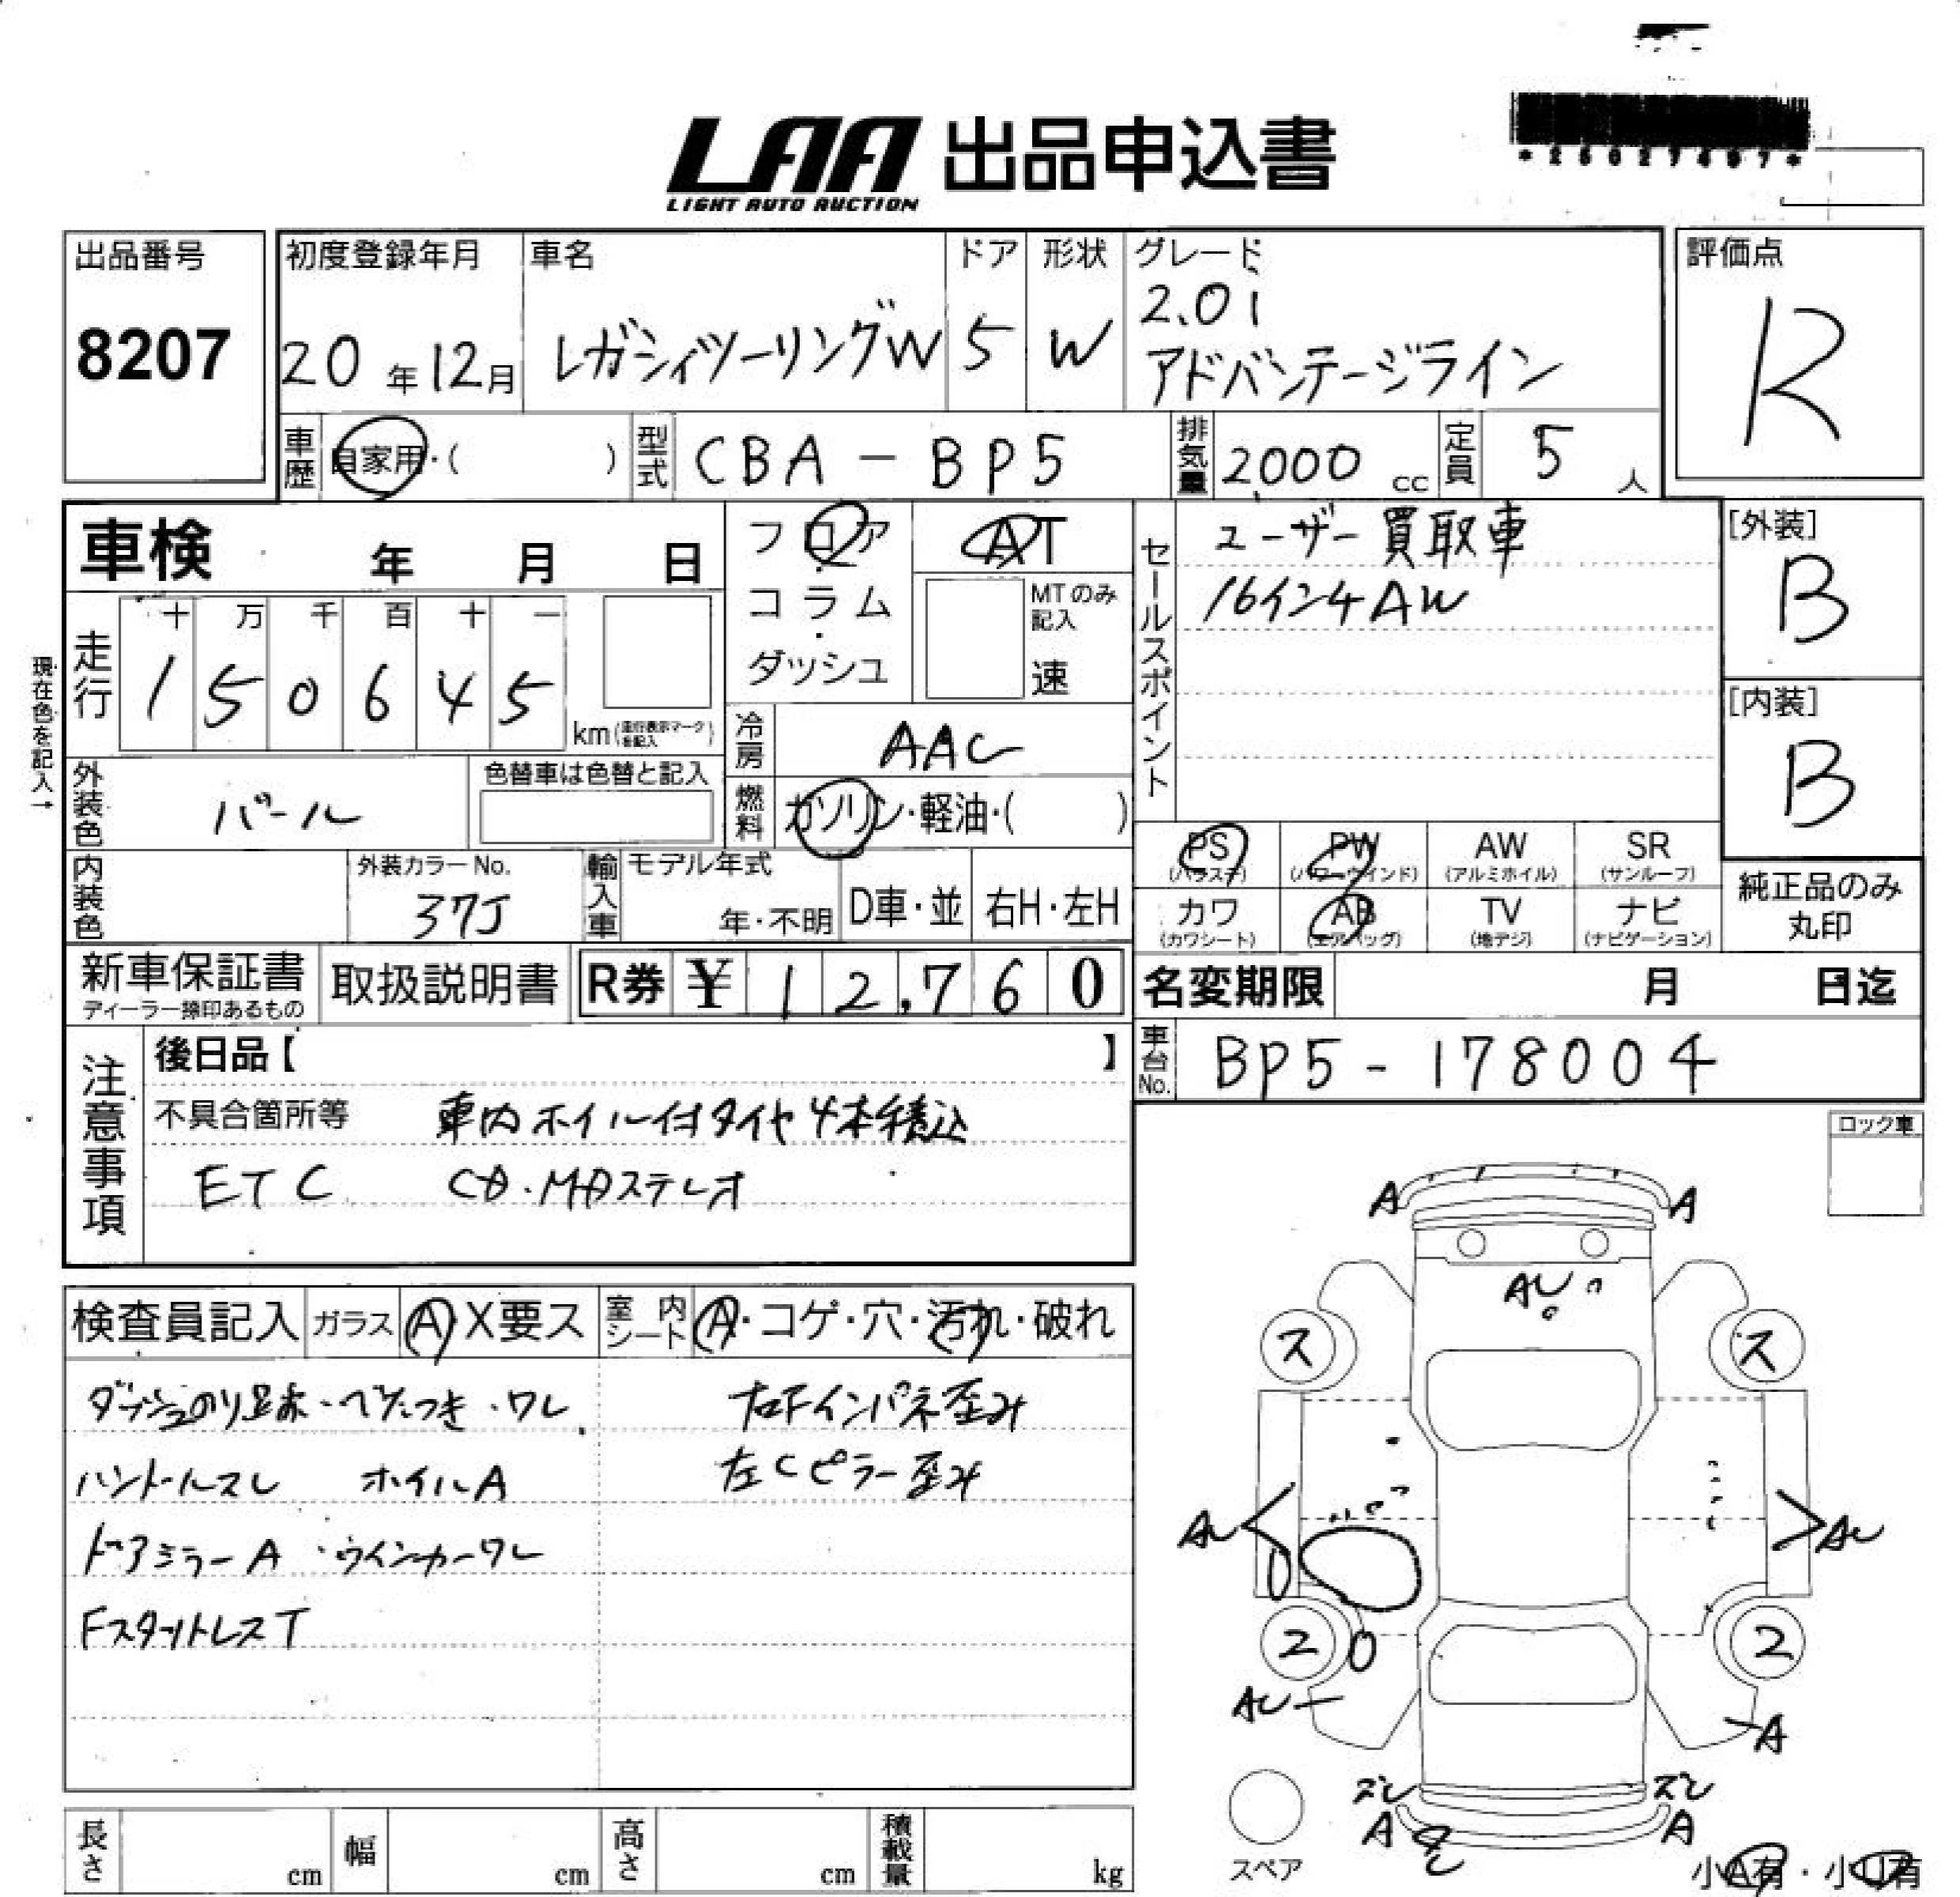 LAA 出品申込書
LIGHT AUTO AUCTION
出品番号
8207
初度登録年月
20年12月
車名
レガシィツーリングW
ドア
5
形状
W
グレード
2.0i
アドバンテージライン
評価点
R
車歴
自家用・( )
型式
CBA-BP5
排気量
2000cc
定員
5人
車検 年 月 日
フロア
コラム
ダッシュ
AT
MTのみ記入
速
セールスポイント
ユーザー買取車
16インチAW
[外装]
B
[内装]
B
現在色を記入→
走行
十 万 千 百 十 一
1 5 0 6 4 5
km(走行表示マークを記入)
冷房
AAC
外装色
パール
色替車は色替と記入
燃料
ガソリン・軽油・( )
内装色
外装カラーNo.
37J
輸入車
モデル年式
年・不明
D車・並
右H・左H
PS
(パワステ)
PW
(パワーウインド)
AW
(アルミホイル)
SR
(サンルーフ)
カワ
(カワシート)
AB
(エアバッグ)
TV
(地デジ)
ナビ
(ナビゲーション)
純正品のみ
丸印
新車保証書
ディーラー捺印あるもの
取扱説明書
R券 ¥12,760
名変期限 月 日迄
車台No.
BP5-178004
注意事項
後日品【 】
不具合箇所等 車内ホイル付タイヤ4本積込
ETC CD・MDステレオ
ロック車
検査員記入
ガラス
A X要ス
室内シート
A・コゲ・穴・汚れ・破れ
ダッシュのり足赤・ベタつき・ワレ
ハンドルスレ ホイルA
ドアミラーA・ウインカーワレ
FスタットレスT
右Fインパネ歪み
左Cピラー歪み
A A
AU
ス ス
AU AU
2 2
AU A
ズレ ズレ
A A
スペア
小A有・小U有
長さ cm
幅 cm
高さ cm
積載量 kg